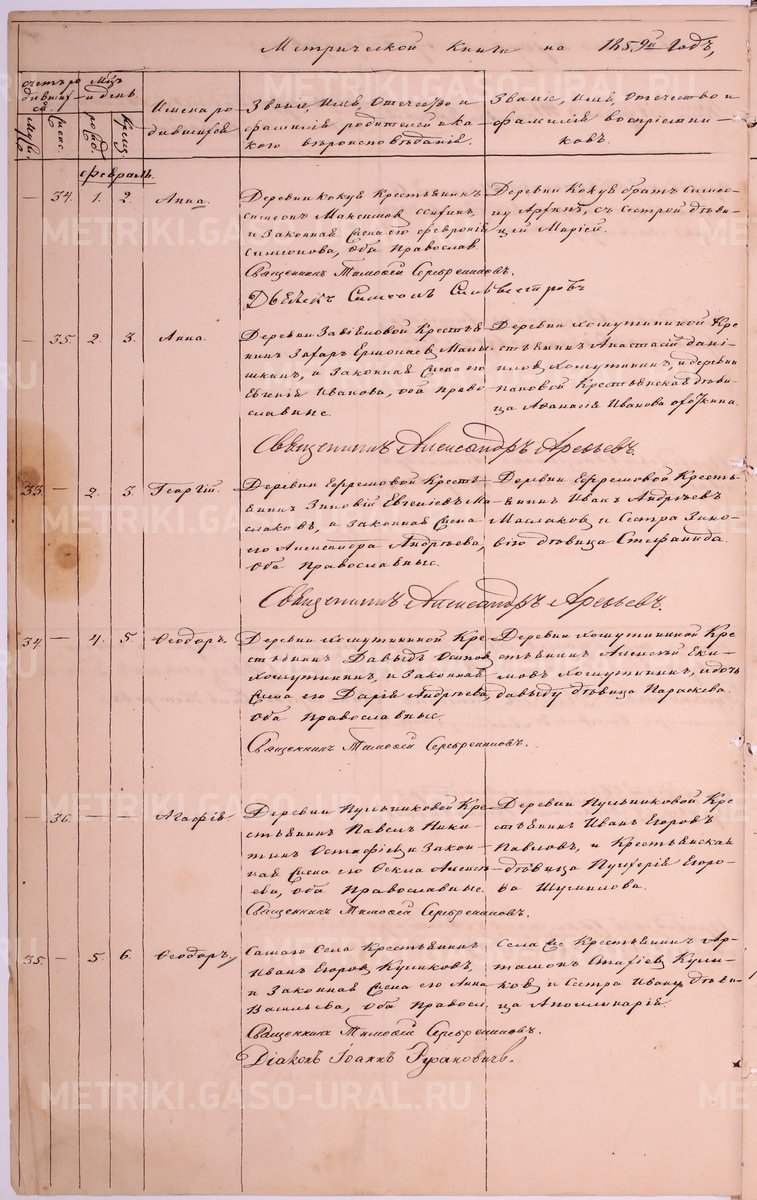 Метрической книги на 1859й годъ,
Счетъ родившихся.
Мѣсяцъ и день.
Имена родившихся
Званіе, имя, отечество и фамилія родителей и какого вѣроисповѣданія.
Званіе, имя, отечество и фамилія воспріемниковъ.
Муж.
Женс.
рожд.
Крещ.
Февраль.
— 34. 1. 2. Анна.
Деревни Кокуя Крестьянинъ
Симеонъ Максимов
и Законная жена его Феврония
Симионова, оба Православ
Священникъ Тимофей Серебренников.
Дьячек Симеонъ Сильвестровъ
Деревни Кокуя братъ Симео-
ну Артипъ, съ сестрой дѣви-
цей Маріей.
— 35. 2. 3. Анна.
Деревни Завьяловой Крестья
нинъ Захаръ Ермолаев
и Законная жена его
Евгенія Иванова, оба право
славные.
Священникъ Александръ Арефьевъ.
Деревни Хомутининой Кре
стьянинъ Анастасій Дані-
ловъ Хомутининъ, и деревни
Крестьянская дѣви-
ца Афанасія Иванова
33. — 2. 3. Георгій.
Деревни Ефремовой Кресть
янинъ Зиновій Евгеніевъ Ма
слаковъ, и Законная жена
его Александра Андрѣева,
оба православные.
Священникъ Александръ Арефьевъ.
Деревни Ефремовой Кресть
янинъ Иванъ Андрѣевъ
Маслаков, и сестра Зино-
вію дѣвица Стефанида.
34. — 4. 5. Феодоръ.
Деревни Хомутининой Кре
стьянинъ Давыдъ Осипов
Хомутининъ, и Законная
жена его Дарія Андрѣева,
оба православные.
Священникъ Тимофей Серебренниковъ.
Деревни Хомутининой Кре
стьянинъ Алексѣй Еки
мовъ Хомутининъ, и дочь
Давыду дѣвица Параскева.
— 36. — — Агафія.
Деревни Пульниковой Кре-
стьянинъ Павелъ Ники-
тинъ Остафіев, и Закон-
ная жена его Фекла Алексѣ
ева, оба Православные.
Священникъ Тимофей Серебренниковъ.
Деревни Пульниковой Кре
стьянинъ Иванъ Егоровъ
Павловъ, и Крестьянская
дѣвица Пулхерія Егоро-
ва Шумилова.
35. — 5. 6. Феодоръ,
Самаго Села Крестьянинъ
Иванъ Егоров Куликовъ,
и Законная жена его Анна
Васильева, оба Правосл.
Священникъ Тимофей Серебренниковъ.
Діаконъ Іоаннъ
Села сего Крестьянинъ Ар-
тамонъ Кули-
ков, и сестра Ивану дѣви-
ца Аполлинарія.
METRIKI.GASO-URAL.RU